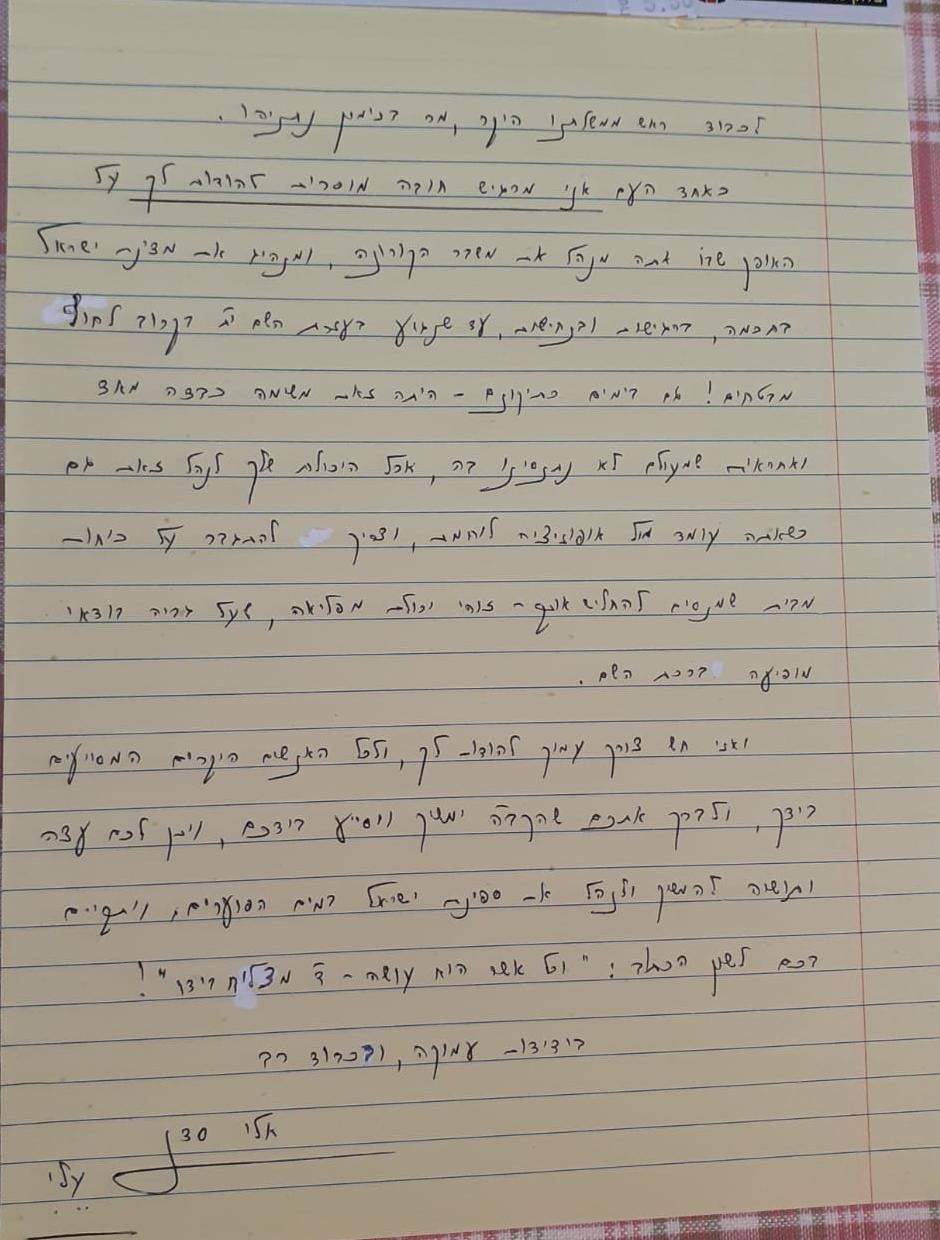 לכבוד ראש ממשלתנו היקר, מר בנימין נתניהו.
כאחד העם אני מרגיש חובה מוסרית להודות לך על
האופן שבו אתה מנהל את משבר הקורונה, ומנהיג את מדינת ישראל
בחכמה, ברגישות ובנחישות, עד שנגיע בעזרת השם ית' בקרוב לחוף
מבטחים! גם בימים כתיקונם - היתה זאת משימה כבדה מאד
ואחראית שמעולם לא נתנסינו בה, אבל היכולת שלך לנהל זאת גם
כשאתה עומד מול אופוזיציה לוחמת, וצריך להתגבר על כוחות
מבית שמנסים להחליש אותך - זוהי יכולת מפליאה, שעל גביה בודאי
מופיעה ברכת השם.
ואני חש צורך עמוק להודות לך, ולכל האנשים היקרים המסייעים
בידך, ולברך אתכם שהקב"ה ימשיך ויסייע בידכם, ויתן לכם עצה
ותושיה להמשיך ולנהל את ספינת ישראל במים הסוערים, ויתקיים
בכם לשון הכתוב: "וכל אשר הוא עושה - ד' מצליח בידו"!
בידידות עמוקה, ובכבוד רב
אלי
עלי